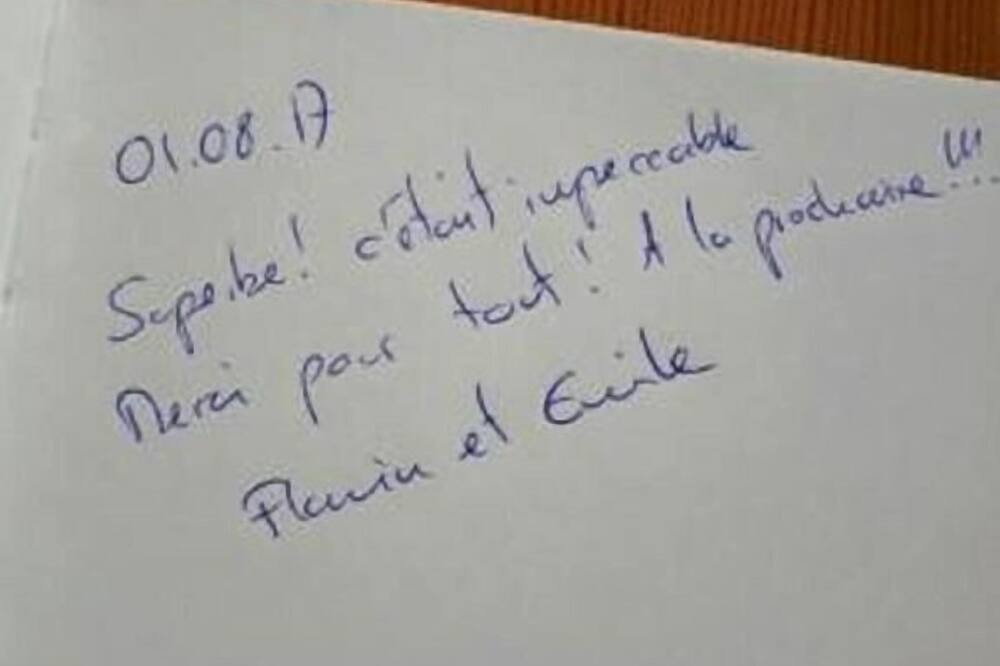 01.08.17
Superbe! c'était impeccable
Merci pour tout! A la prochaine!!!...
et Emilie